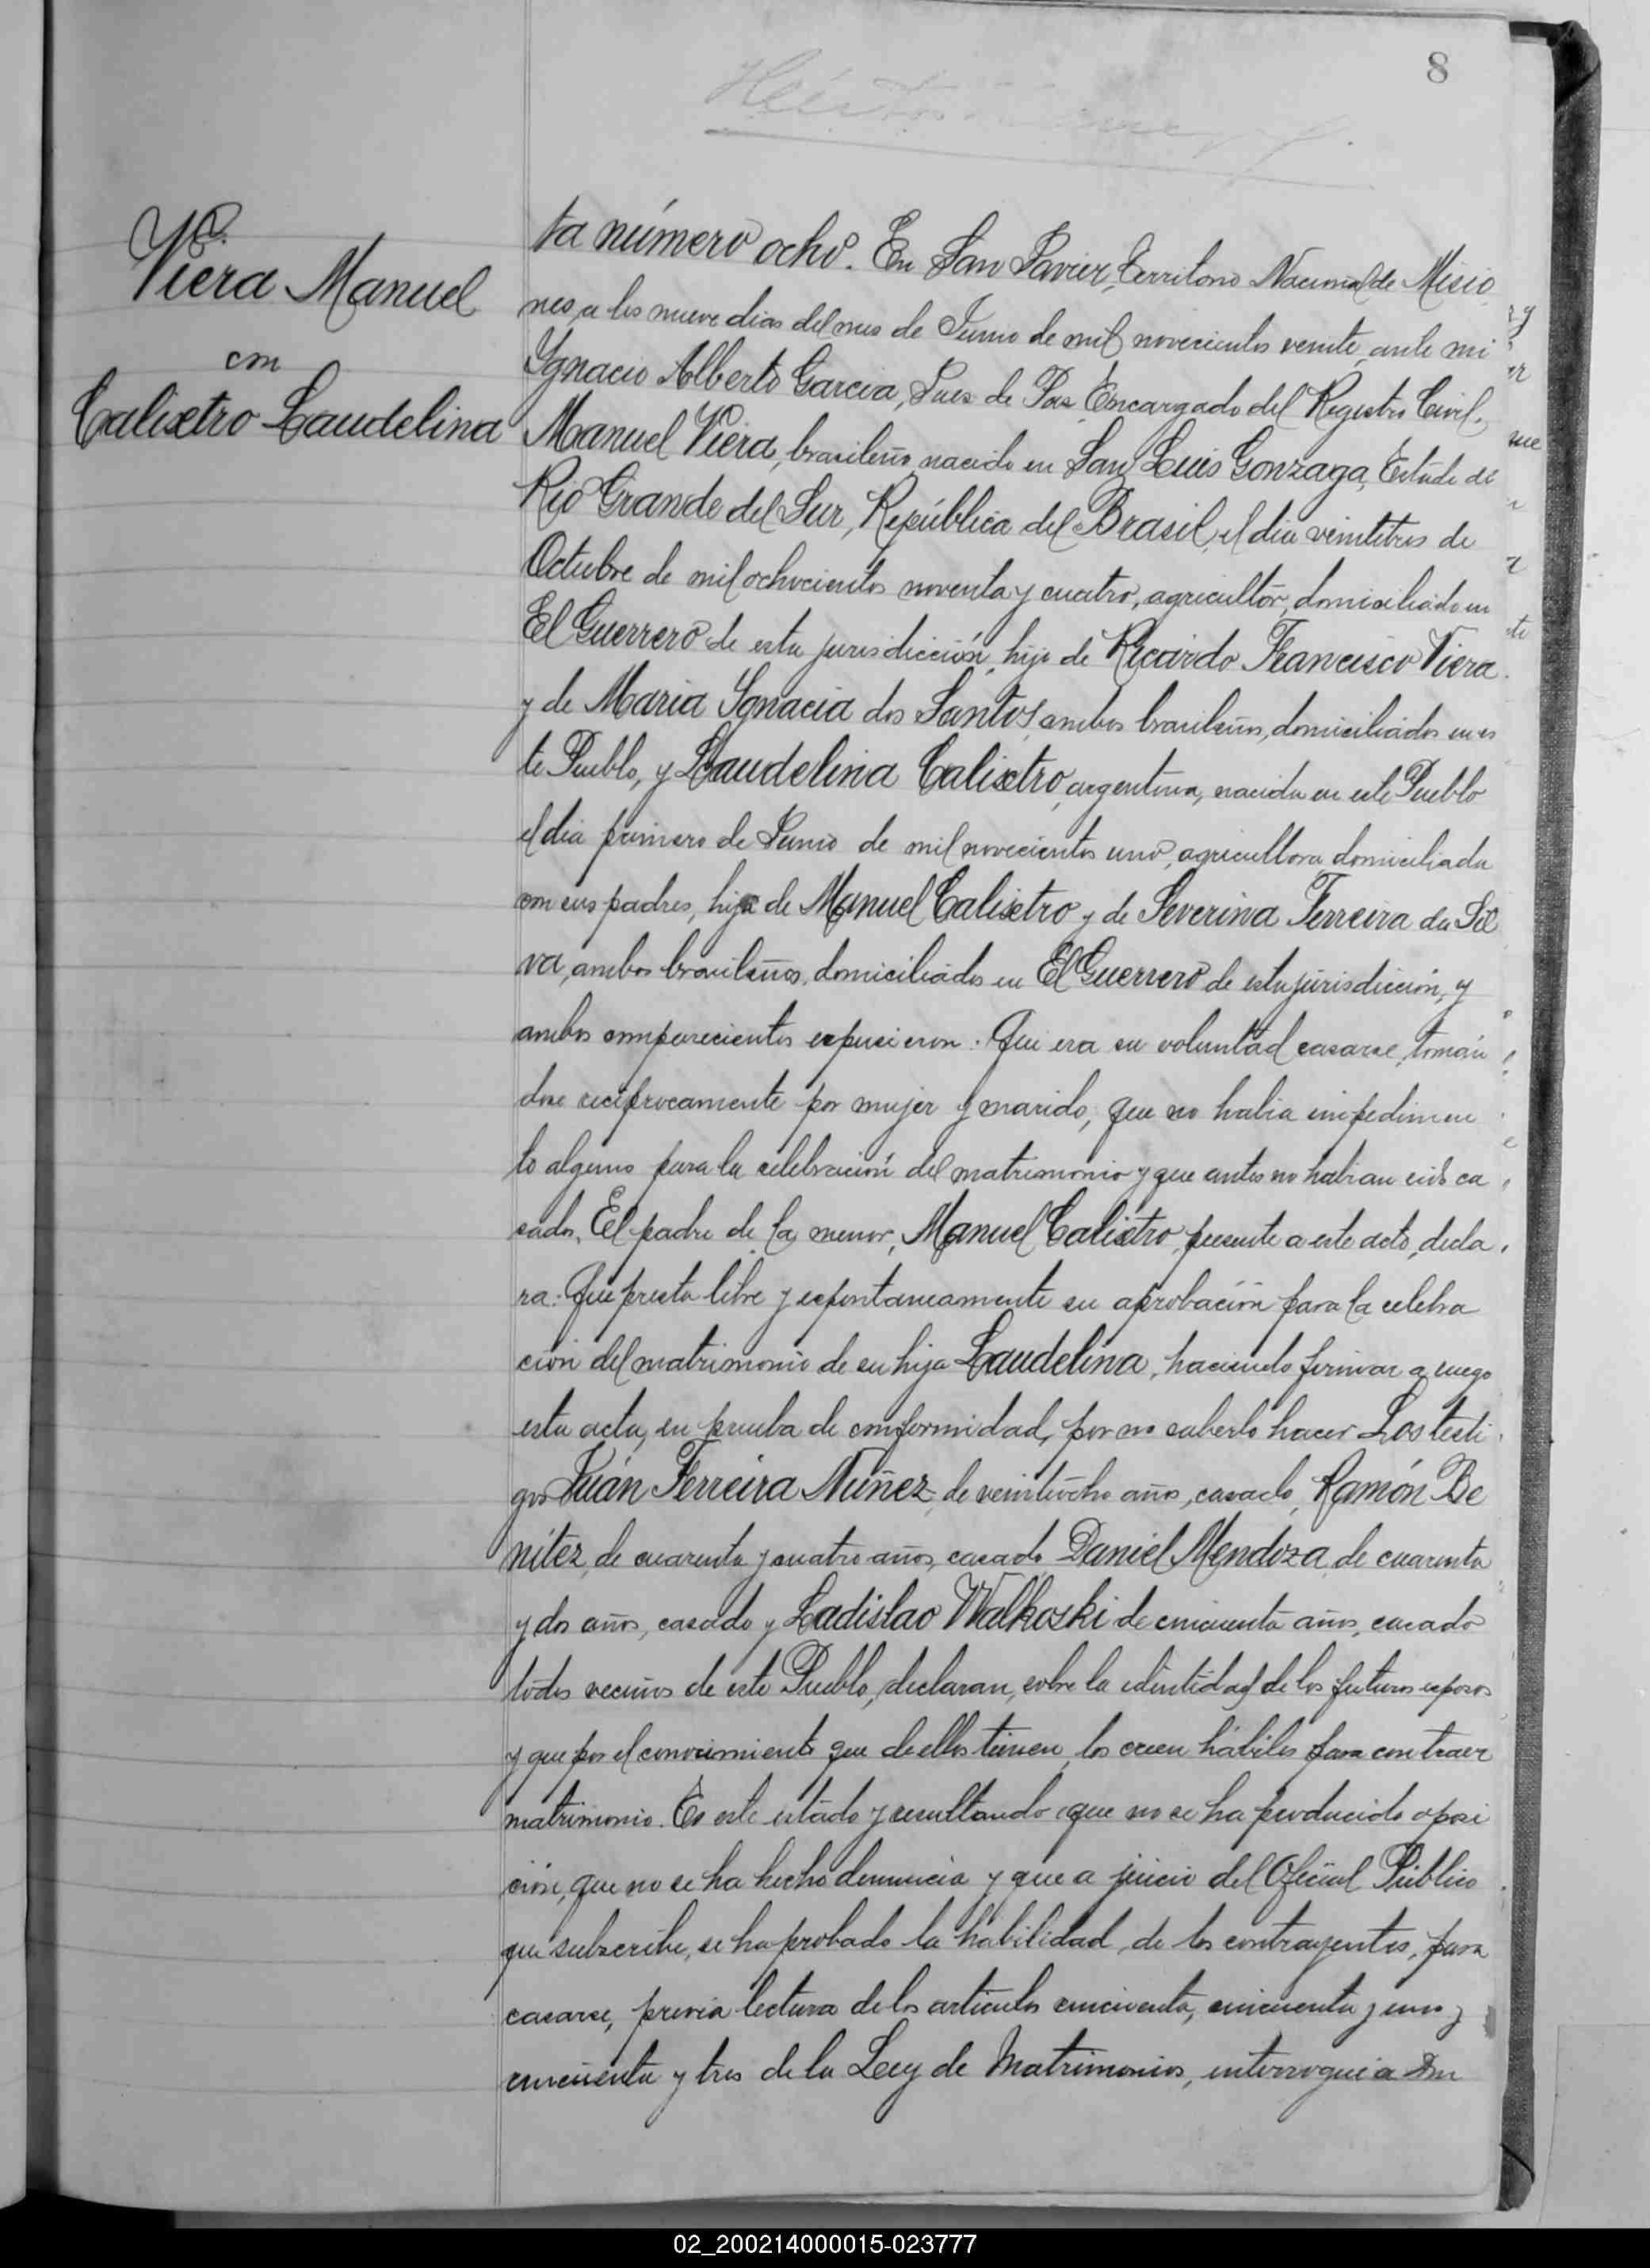 8
Nº 8.
Viera Manuel
con
Calixtro Laudelina
ta número ocho. En San Javier, Territorio Nacional de Misio
nes, a los nueve dias del mes de Junio de mil novecientos veinte, ante mi
Ygnacio Alberto Garcia, Juez de Paz Encargado del Registro Civil,
Manuel Viera, brasileño, nacido en San Luis Gonzaga, Estado de
Rio Grande del Sur, República del Brasil, el dia veintitres de
Octubre de mil ochocientos noventa y cuatro, agricultor, domiciliado en
El Guerrero de esta jurisdicción, hijo de Ricardo Francisco Viera
y de Maria Ignacia dos Santos, ambos brasileños, domiciliados en es
te Pueblo, y Laudelina Calixtro, argentina, nacida en este Pueblo
el dia primero de Junio de mil novecientos uno, agricultora, domiciliada
con sus padres, hija de Manuel Calixtro y de Severina Ferreira da Sil
va, ambos brasileños, domiciliados en El Guerrero de esta jurisdicción, y
ambos comparecientes expusieron: Que era su voluntad casarse, tomán
dose recíprocamente por mujer y marido, que no habia impedimen
to alguno para la celebración del matrimonio y que antes no habian sido ca
sados. El padre de la menor, Manuel Calixtro, presente a este acto, decla
ra: Que presta libre y espontaneamente su aprobación para la celebra
ción del matrimonio de su hija Laudelina, haciendo firmar a ruego
esta acta, en prueba de conformidad, por no saberlo hacer. Los testi
gos Juán Ferreira Nuñez, de veintiocho años, casado, Ramón Be
nítez, de cuarenta y cuatro años, casado, Daniel Mendoza, de cuarenta
y dos años, casado y Ladislao Walkoski de cincuenta años, casado
todos vecinos de este Pueblo, declaran, sobre la identidad de los futuros esposos
y que por el conocimiento que de ellos tienen, los creen hábiles para contraer
matrimonio. En este estado y resultando que no se ha producido oposi
ción, que no se ha hecho denuncia y que a juicio del Oficial Público
que subscribe, se ha probado la habilidad de los contrayentes, para
casarse, previa lectura de los articulos cincuenta, cincuenta y uno y
cincuenta y tres de la Ley de Matrimonios, interrogué a Don
02_200214000015-023777